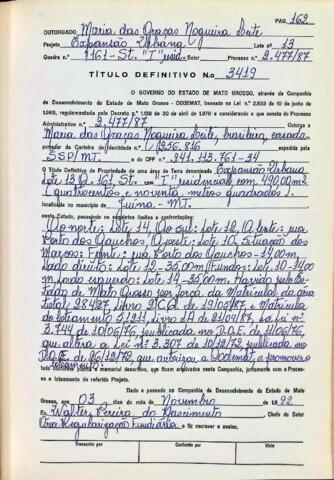 PAG. 162
OUTORGADO Maria das Graças Nogueira Leite
Projeto Expansão Urbana Lote n.º 13
Quadra n.º 161-St. "I" resid. Setor Processo 2.477/87
TÍTULO DEFINITIVO N.º 3419
O GOVERNO DO ESTADO DE MATO GROSSO, através da Companhia
de Desenvolvimento do Estado de Mato Grosso - CODEMAT, com base na Lei n.º 2.933 de 10 de junho de
1969, regulamentada pelo Decreto n.º 1.138 de 30 de abril de 1970 e considerando o que consta do Processo
Administrativo n.º 2.477/87 Outorga a
Maria das Graças Nogueira Leite, brasileira, casada
portador da Carteira de Identidade n.º 256.816 expedida pela
SSP/MT. e do CPF n.º 341.113.761-34
O Título Definitivo de Propriedade de uma área de Terra denominada Expansão Urbana
Lote 13 Q. 161, St. "I" residencial com 490,00 m²
(Quatrocentos e noventa metros quadrados).
localizada no município de Juína - MT.
neste Estado, possuindo os seguintes limites e confrontações:
Ao norte: lote 14, Ao sul: lote 12, A leste: rua
Porto dos Gaúchos, A oeste: lote 10, Situação dos
Marcos: Frente: rua Porto dos Gaúchos - 14,00m,
lado direito: lote 12 - 35,00m, Fundos: lote 10 - 14,00
m, lado esquerdo: lote 14 - 35,00m. Havido pelo Es-
tado de Mato Grosso por força da Matrícula da área
total, 28.427, livro 2CD de 19/05/87 e Matrícula
do loteamento 51211, livro 1A de 21/04/87, Lei nº
3.744 de 10/06/76, publicada no D.O.E. de 11/06/76,
que altera a Lei nº 3.307 de 10/12/72, publicada no
D.O.E. de 26/12/72 que autorizou a Codemat, a promover o
loteamento.
tudo conforme planta e memorial descritivo, que ficam arquivados nesta Companhia, juntamente com o Proces-
so e inteiramento do referido Projeto.
Dado e passado na Companhia de Desenvolvimento do Estado de Mato
Grosso, aos 03 dias do mês de Novembro de 19 92
Eu Walter Pereira do Nascimento Chefe do Setor
Regularização Fundiária o fiz escrever e assino.
Transcrito por Conferido por Visto